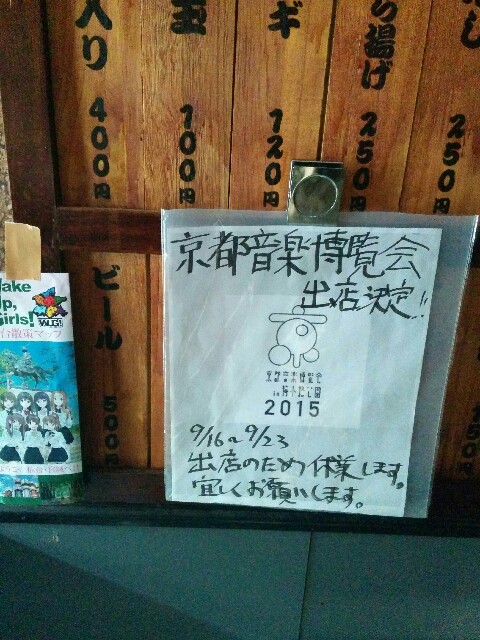 入り
400円
玉
100円
ギ
120円
ら揚げ
250円
し
250円
ビール
500円
Wake
Up,
Girls!
WUG!
台散策マップ
京都音楽博覧会
出店決定!!
京都音楽博覧会
in 梅小路公園
2015
9/16〜9/23
出店のため休業します。
宜しくお願いします。